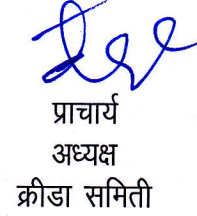 प्राचार्य
अध्यक्ष
क्रीडा समिती